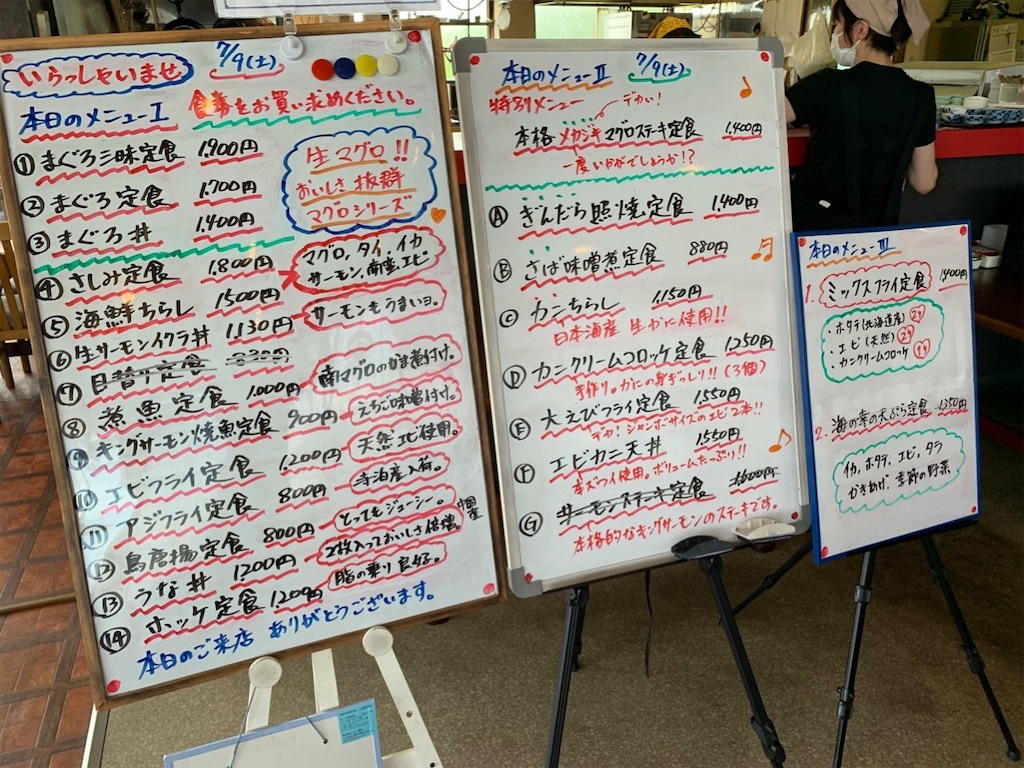 いらっしゃいませ 7/9(土)
本日のメニューⅠ 食券をお買い求めください。
① まぐろ三昧定食 1,900円
② まぐろ定食 1,700円
③ まぐろ丼 1,400円
生マグロ!!
おいしさ抜群
マグロシリーズ
④ さしみ定食 1,800円
マグロ、タイ、イカ
サーモン、南蛮エビ
⑤ 海鮮ちらし 1500円
⑥ 生サーモンイクラ丼 1,130円 サーモンもうまいヨ。
⑦ 日替り定食
⑧ 煮魚定食 1,000円 南マグロのかま煮付け。
⑨ キングサーモン焼魚定食 900円 えちご味噌付け。
⑩ エビフライ定食 1,200円 天然エビ使用。
⑪ アジフライ定食 800円 寺泊産入荷。
⑫ 鳥唐揚定食 800円 とってもジューシー。
⑬ うな丼 1200円 2枚入っておいしさ倍増。
⑭ ホッケ定食 1,200円 脂の乗り良好。
本日のご来店 ありがとうございます。
本日のメニューⅡ 7/9(土)
特別メニュー デカい!
本格メカジキマグロステーキ定食 1,400円
一度いかがでしょうか!?
Ⓐ ぎんだら照焼定食 1,400円
Ⓑ さば味噌煮定食 880円
Ⓒ カニちらし 1,150円
日本海産 生かに使用!!
Ⓓ カニクリームコロッケ定食 1,250円
手作り。かにの身ぎっしり!!(3個)
Ⓔ 大えびフライ定食 1,550円
デカ!ジャンボサイズのエビ2本!!
Ⓕ エビカニ天丼 1,550円
本ズワイ使用。ボリュームたっぷり!!
Ⓖ サーモンステーキ定食 1,600円
本格的なキングサーモンのステーキです。
本日のメニューⅢ
1. ミックスフライ定食 1,400円
・ホタテ(北海道産) 2ケ
・エビ(天然) 2ケ
・カニクリームコロッケ 1ケ
2. 海の幸の天ぷら定食 1,350円
イカ、ホタテ、エビ、タラ
かきあげ、季節の野菜